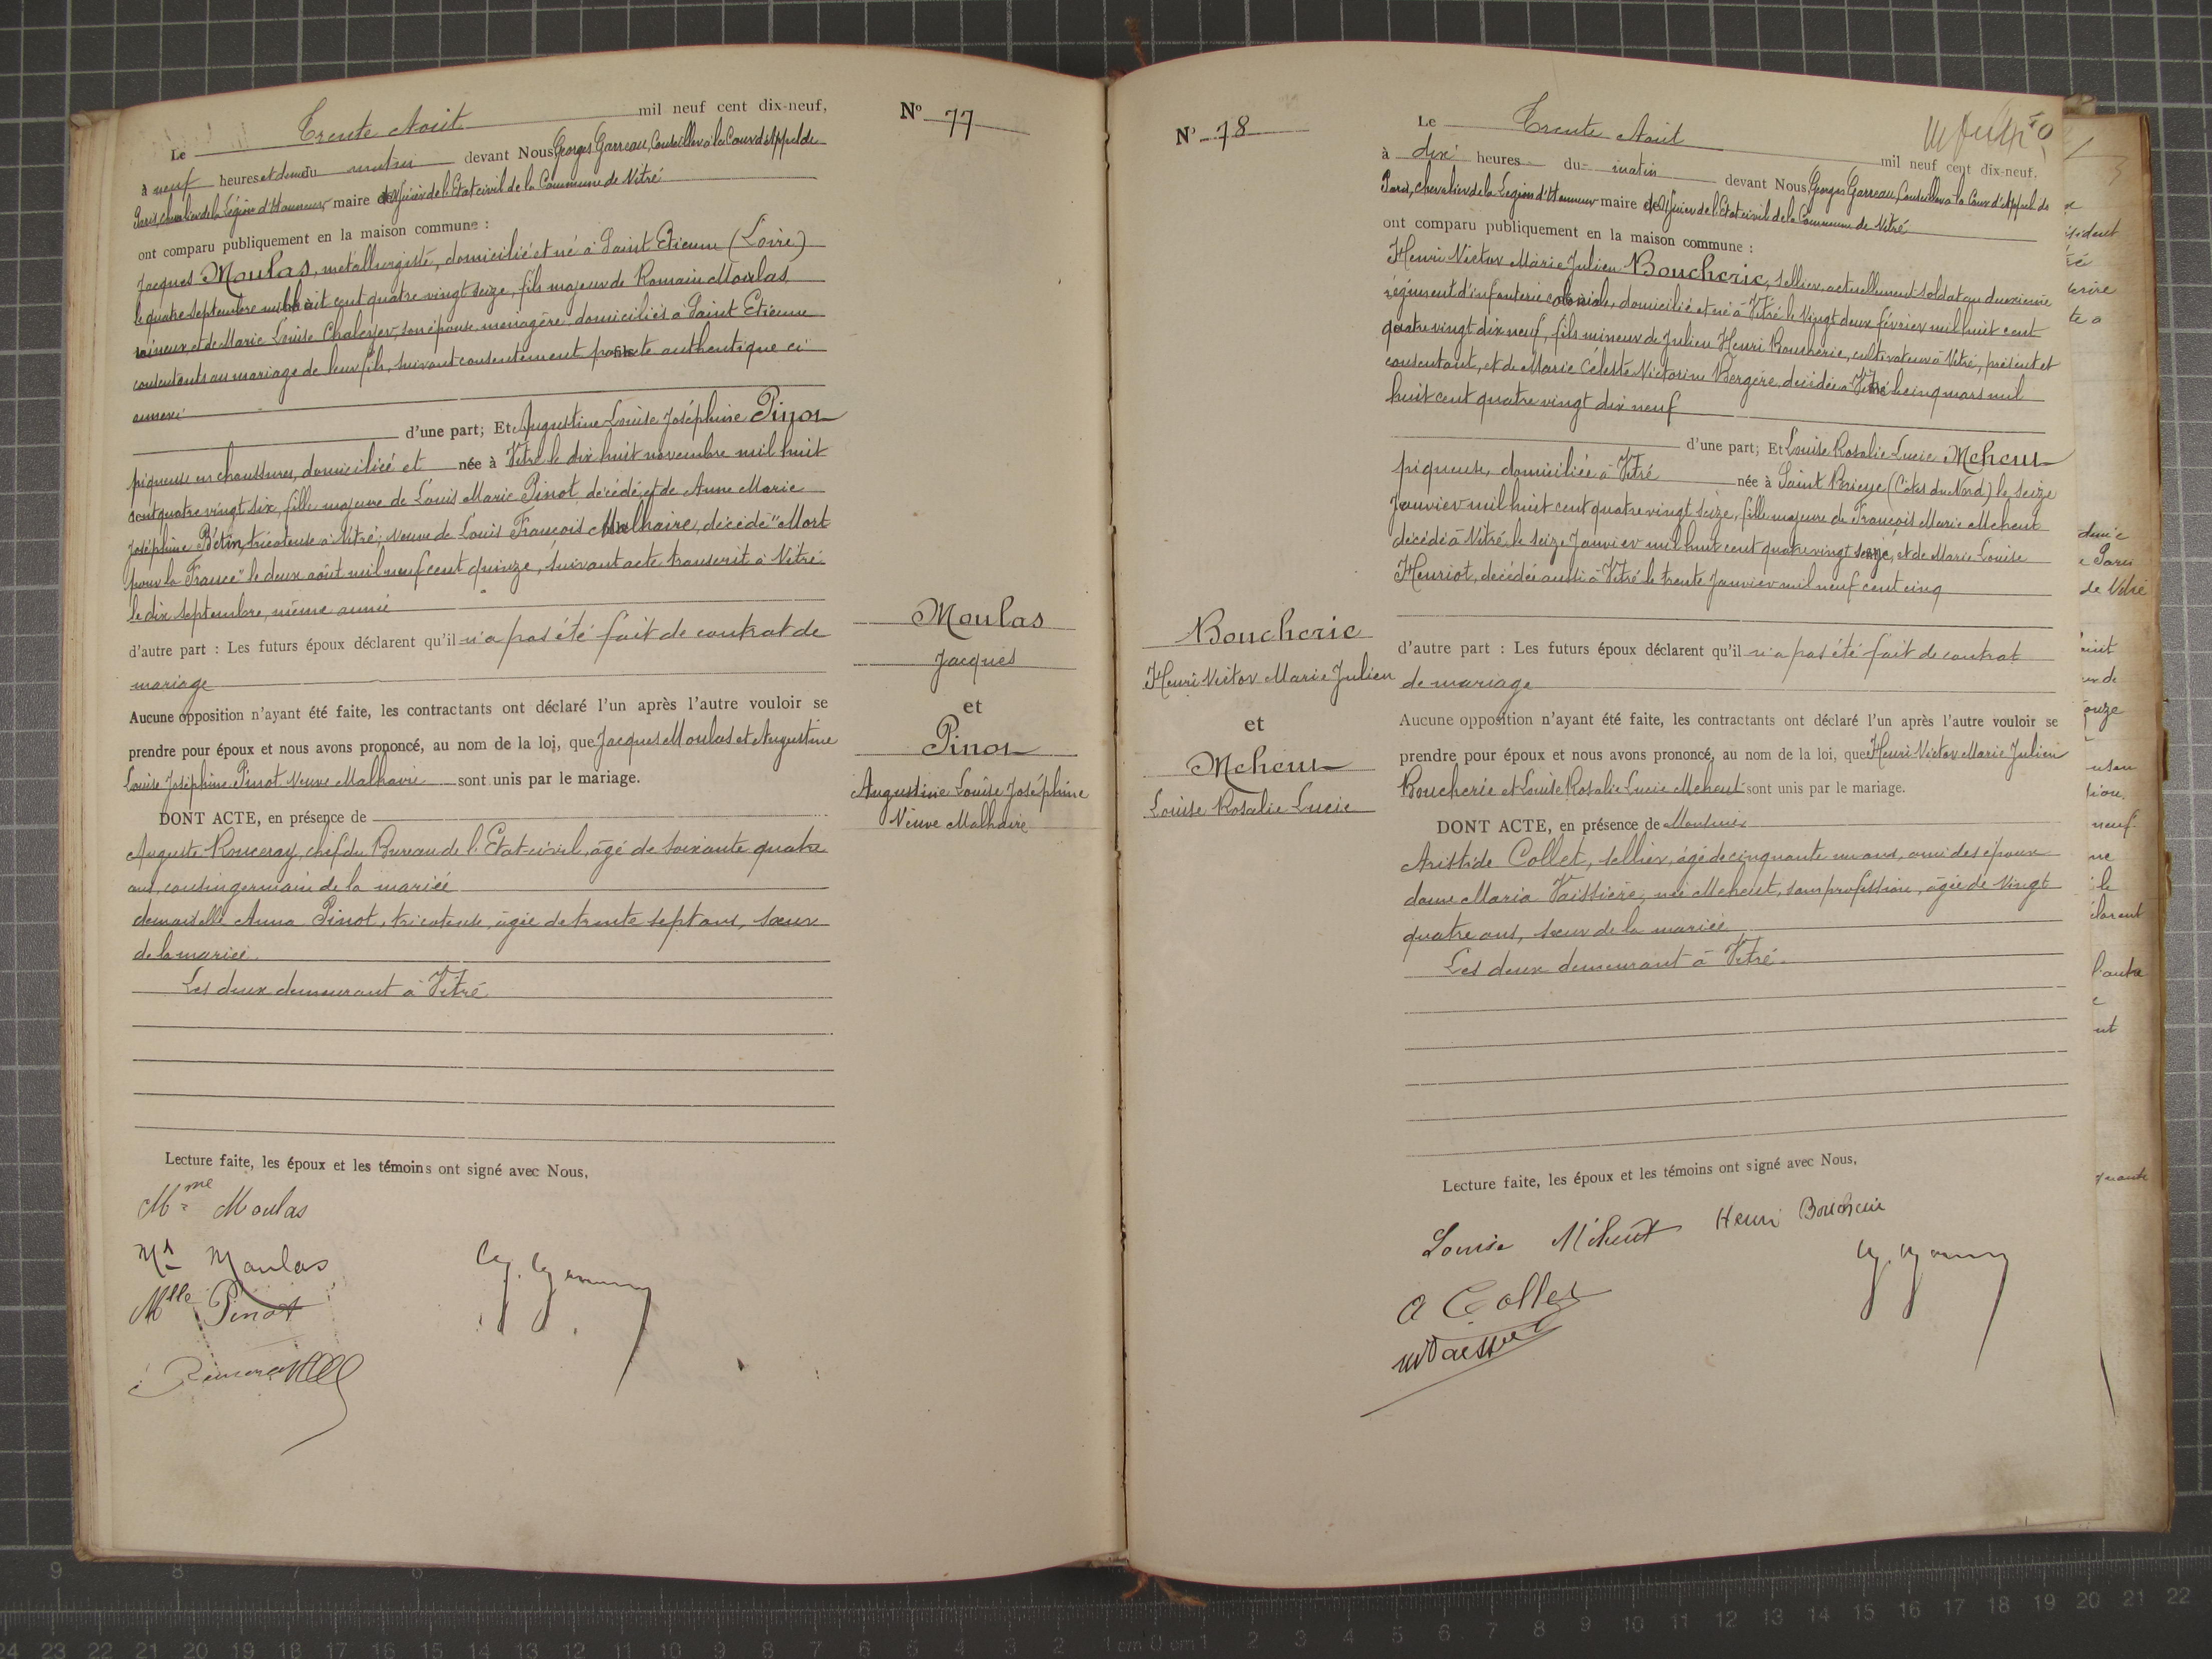 Le Trente Août mil neuf cent dix-neuf,
à neuf heures et demie du matin devant Nous Georges Garreau, Conseiller à la Cour d'Appel de
Paris, chevalier de la Légion d'Honneur, maire officier de l'Etat civil de la Commune de Vitré
ont comparu publiquement en la maison commune :
Jacques Moulas, métallurgiste, domicilié et né à Saint Etienne (Loire)
le quatre Septembre mil huit cent quatre vingt seize, fils majeur de Romain Moulas
mineur, et de Marie Louise Chaleyer, son épouse, ménagère, domiciliés à Saint Etienne
consentants au mariage de leur fils, suivant consentement par acte authentique ci
annexé
d'une part; Et Augustine Louise Joséphine Pinot
piqueuse en chaussures, domiciliée et née à Vitré le dix huit novembre mil huit
cent quatre vingt six, fille majeure de Louis Marie Pinot décédé, et de Anne Marie
Joséphine Bétin, tricoteuse à Vitré; Veuve de Louis François Malhaire, décédé "Mort
pour la France" le deux août mil neuf cent quinze, suivant acte transcrit à Vitré
le dix septembre, même année
d'autre part : Les futurs époux déclarent qu'il n'a pas été fait de contrat de
mariage
Aucune opposition n'ayant été faite, les contractants ont déclaré l'un après l'autre vouloir se
prendre pour époux et nous avons prononcé, au nom de la loi, que Jacques Moulas et Augustine
Louise Joséphine Pinot Veuve Malhaire sont unis par le mariage.
DONT ACTE, en présence de
Auguste Rouceray, chef du Bureau de l'Etat-civil, âgé de soixante quatre
ans, cousin germain de la mariée
demoiselle Anna Pinot, tricoteuse, âgée de trente sept ans, sœur
de la mariée.
Les deux demeurant à Vitré
Lecture faite, les époux et les témoins ont signé avec Nous,
Mme Moulas
Mr Moulas
Mlle Pinot
N° 77
Moulas
Jacques
et
Pinot
Augustine Louise Joséphine
Veuve Malhaire
N° 78
Boucherie
Henri Victor Marie Julien
et
Meheut
Louise Rosalie Lucie
Le Trente Août mil neuf cent dix-neuf.
à dix heures du matin devant Nous, Georges Garreau, Conseiller à la Cour d'Appel de
Paris, chevalier de la Légion d'Honneur maire officier de l'Etat civil de la Commune de Vitré
ont comparu publiquement en la maison commune :
Henri Victor Marie Julien Boucherie, sellier, actuellement soldat au deuxième
régiment d'infanterie coloniale, domicilié et né à Vitré le Vingt deux février mil huit cent
quatre vingt dix neuf, fils mineur de Julien Henri Boucherie, cultivateur à Vitré, présent et
consentant, et de Marie Céleste Victorine Bergère, décédée à Vitré le cinq mars mil
huit cent quatre vingt dix neuf
d'une part; Et Louise Rosalie Lucie Meheut
piqueuse, domiciliée à Vitré née à Saint Brieuc (Côtes du Nord) le seize
Janvier mil huit cent quatre vingt seize, fille majeure de François Marie Meheut
décédé à Vitré le seize Janvier mil huit cent quatre vingt seize, et de Marie Louise
Henriot, décédée aussi à Vitré le trente Janvier mil neuf cent cinq
d'autre part : Les futurs époux déclarent qu'il n'a pas été fait de contrat
de mariage
Aucune opposition n'ayant été faite, les contractants ont déclaré l'un après l'autre vouloir se
prendre pour époux et nous avons prononcé, au nom de la loi, que Henri Victor Marie Julien
Boucherie et Louise Rosalie Lucie Meheut sont unis par le mariage.
DONT ACTE, en présence de
Aristide Collet, sellier, âgé de cinquante un ans, ami des époux
dame Maria Vaissière, née Meheut, sans profession, âgée de Vingt
quatre ans, sœur de la mariée
Les deux demeurant à Vitré.
Lecture faite, les époux et les témoins ont signé avec Nous,
Louise Méheut Henri Boucherie
A Collet